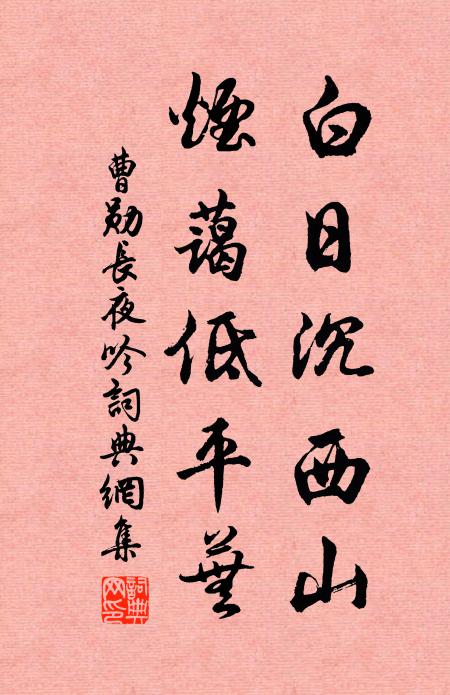 白日沉西山
煙藹低平蕪
曹勛長夜吟詞典網集
詞典网印